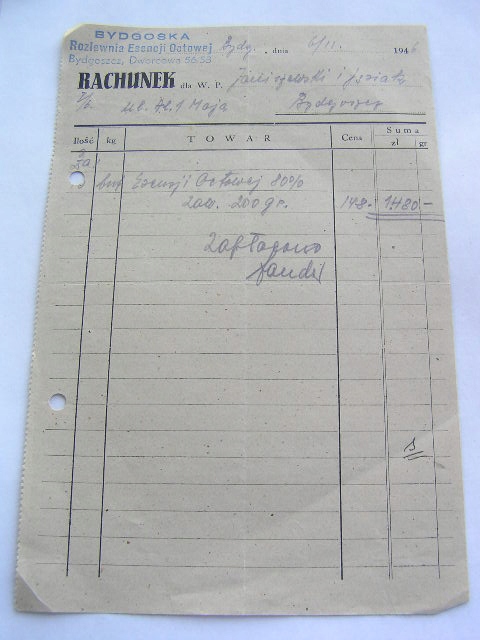 BYDGOSKA
Rozlewnia Esencji Octowej
Bydgoszcz, Dworcowa 56.58
Bydg. , dnia 6/II. 1946
RACHUNEK dla W. P. Janiszewski i
ul. Al. 1 Maja Bydgoszcz
Ilość kg TOWAR Cena Suma
zł gr
but Esencji Octowej 80%
zaw. 200 gr. 148.- 1.480.-
Zapłacono